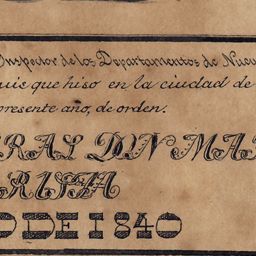 Inspector de los Departamentos de Nuev
uis que hiso en la ciudad de
presente año, de orden.
ERAL DON MAR
RISTA
O DE 1840